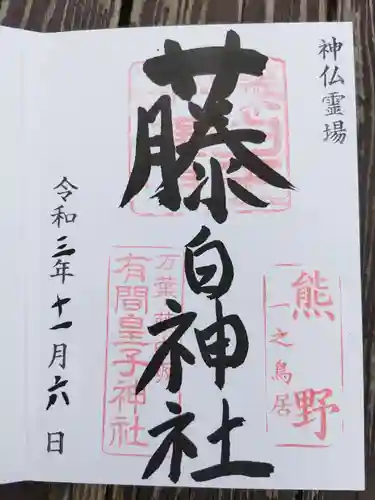 神仏霊場
熊野
一之鳥居
藤白神社
有間皇子神社
令和三年十一月六日